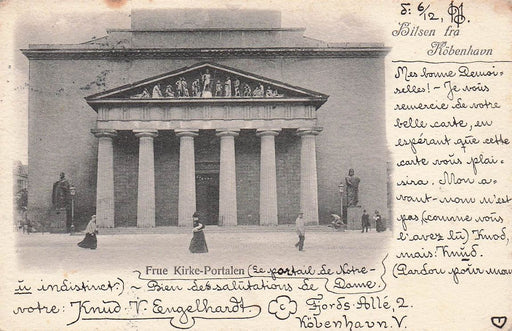 d: 6/12,
Hilsen fra
Köbenhavn
Mes bonne Demoi-
selles! - Je vous
remercie de votre
belle carte, en
espérant que cette
carte vous plai-
sira. Mon a-
vant-nom n'est
pas (comme vous
l'avez lu) Knod,
mais: Knud.
(Pardon pour mon
Frue Kirke-Portalen (Le portail de Notre-
Dame.)
u indistinct.) - Bien des salutations de
votre: Knud V. Engelhardt Fjords Allé, 2.
Köbenhavn. V.